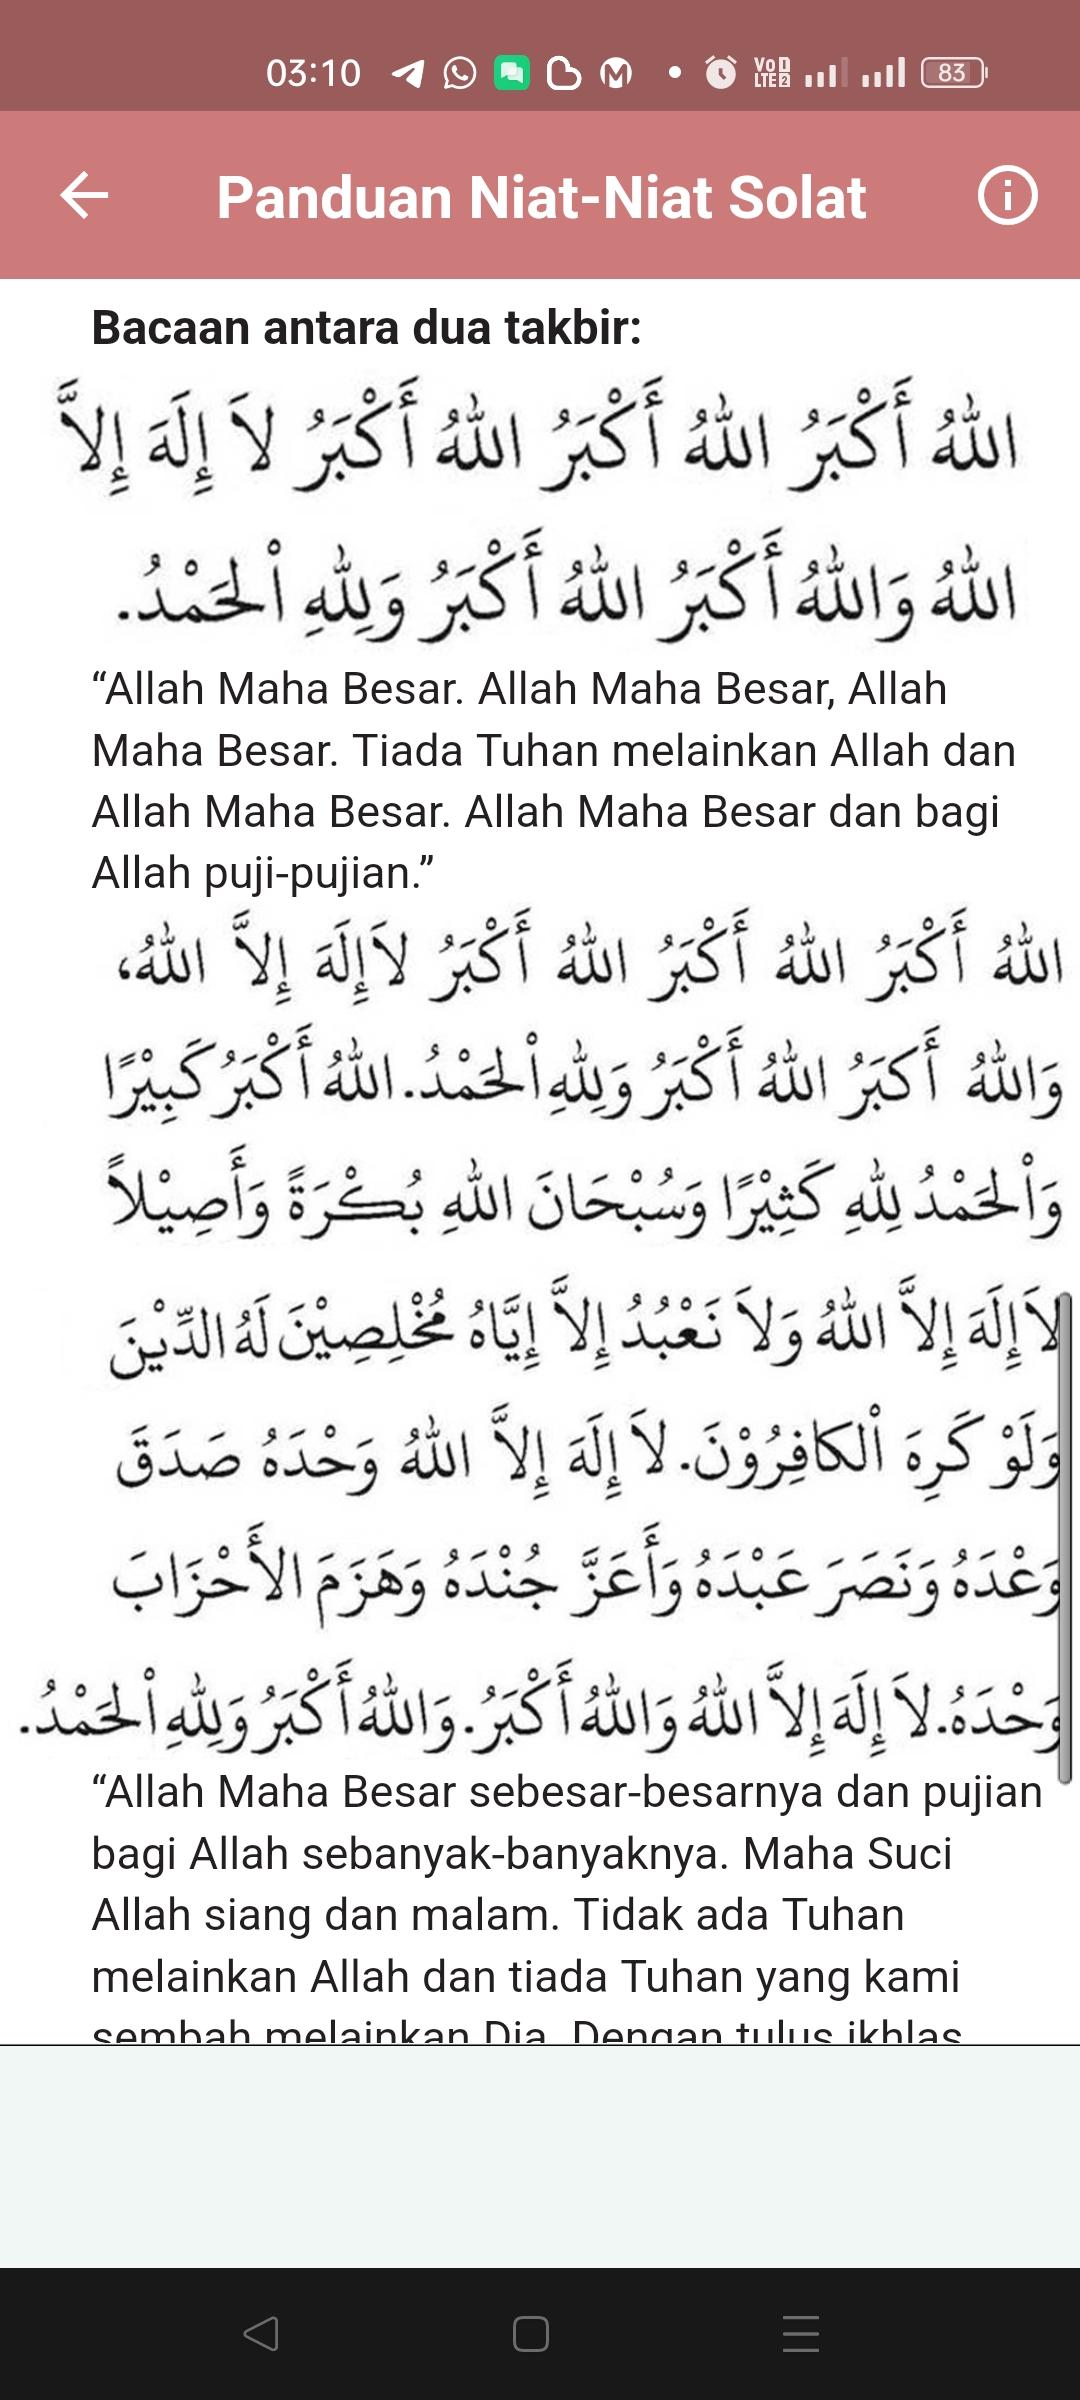 03:10
VoD LTE2
83
Panduan Niat-Niat Solat
Bacaan antara dua takbir:
اللهُ أَكْبَرُ اللهُ أَكْبَرُ اللهُ أَكْبَرُ لاَ إِلَهَ إِلاَّ
اللهُ وَاللهُ أَكْبَرُ اللهُ أَكْبَرُ وَلِلهِ اْلحَمْدُ.
“Allah Maha Besar. Allah Maha Besar, Allah
Maha Besar. Tiada Tuhan melainkan Allah dan
Allah Maha Besar. Allah Maha Besar dan bagi
Allah puji-pujian.”
اللهُ أَكْبَرُ اللهُ أَكْبَرُ اللهُ أَكْبَرُ لاَإِلَهَ إِلاَّ اللهُ،
وَاللهُ أَكبَرُ اللهُ أَكْبَرُ وَلِلهِ اْلحَمْدُ. اللهُ أَكْبَرُ كَبِيْرًا
وَاْلحَمْدُ لِلهِ كَثِيْرًا وَسُبْحَانَ اللهِ بُكْرَةً وَأَصِيْلاً
لاَإِلَهَ إِلاَّ اللهُ وَلاَ نَعْبُدُ إِلاَّ إِيَّاهُ مُخْلِصِيْنَ لَهُ الدِّيْنَ
وَلَوْ كَرِهَ اْلكافِرُوْنَ. لاَ إِلَهَ إِلاَّ اللهُ وَحْدَهُ صَدَقَ
وَعْدَهُ وَنَصَرَ عَبْدَهُ وَأَعَزَّ جُنْدَهُ وَهَزَمَ الأَحْزَابَ
وَحْدَهُ. لاَ إِلَهَ إِلاَّ اللهُ وَاللهُ أَكْبَرُ. وَاللهُ أَكْبَرُ وَلِلهِ اْلحَمْدُ.
“Allah Maha Besar sebesar-besarnya dan pujian
bagi Allah sebanyak-banyaknya. Maha Suci
Allah siang dan malam. Tidak ada Tuhan
melainkan Allah dan tiada Tuhan yang kami
sembah melainkan Dia. Dengan tulus ikhlas